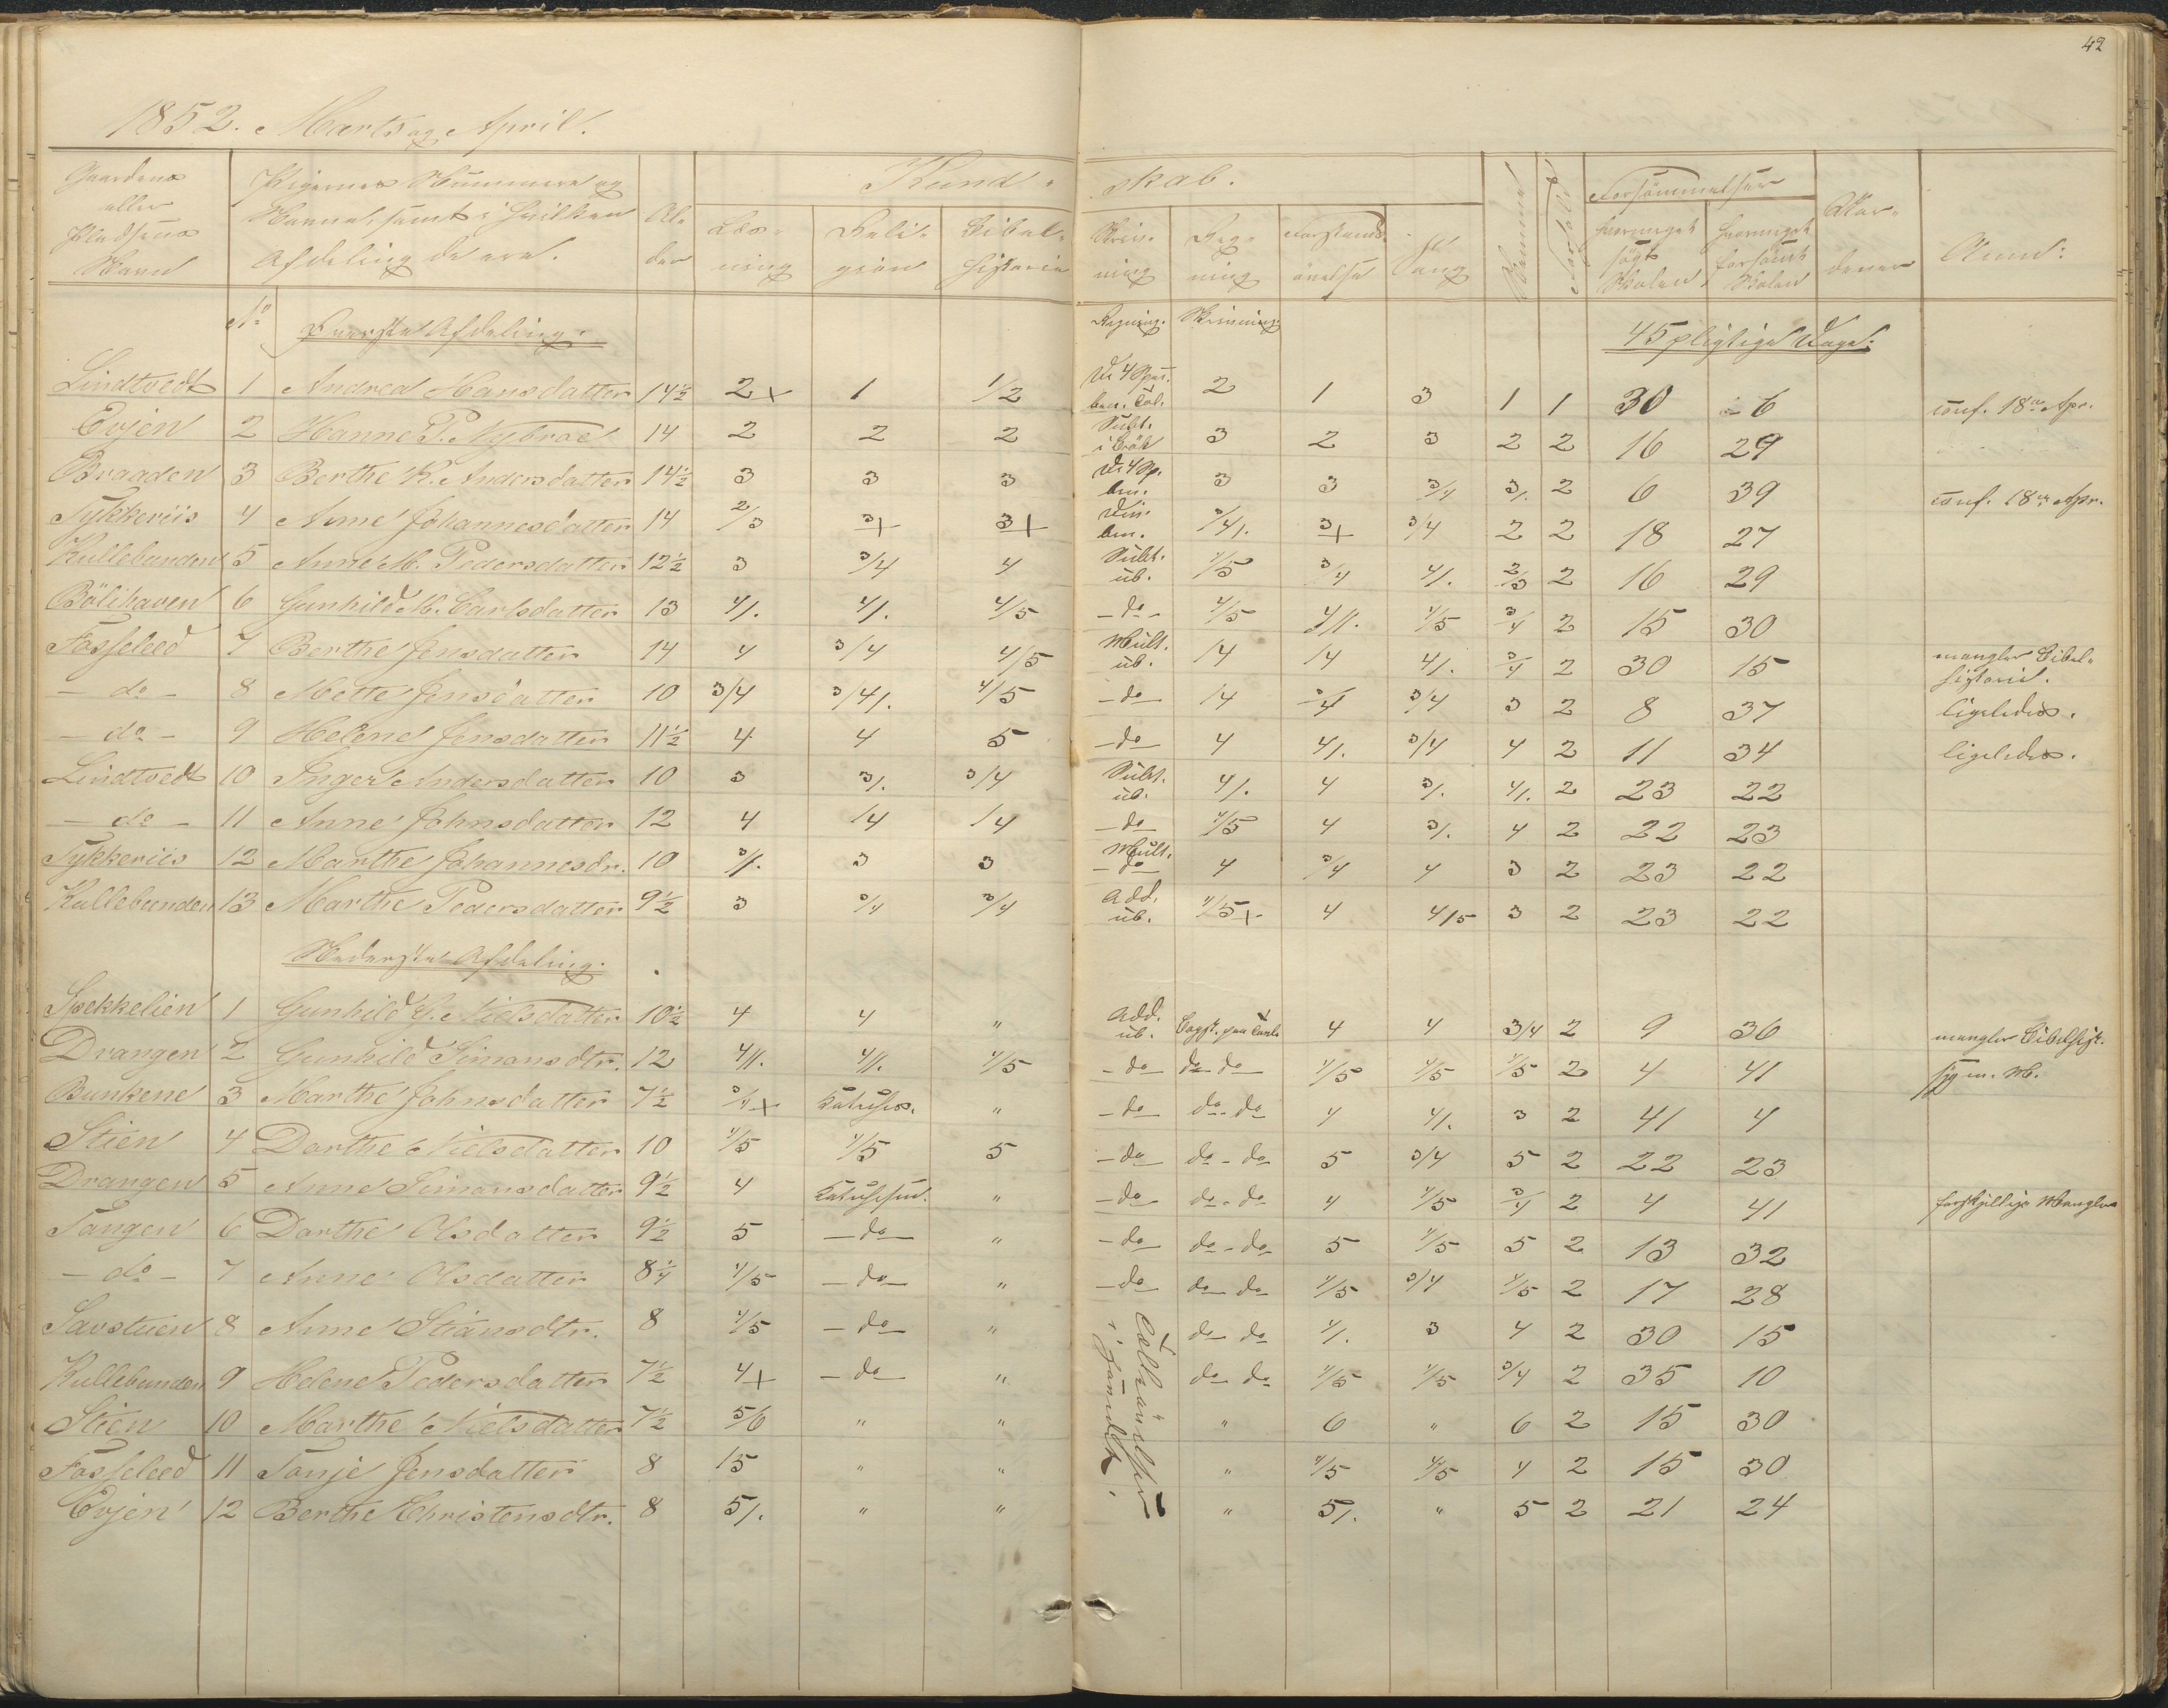 42
1852. Marts og April.
Gaardens eller Pladsens Navn
Pigernes Nummere og Navne, samt i hvilken Afdeling de ere.
Al- der
Kund- skab.
Læs- ning
Reli- gion
Bibel- historie
Skriv- ning
Reg- ning
Forstands- øvelse
Sang
Nemme
Forhold
Forsömmelser
hvormeget sögt Skolen
hvormeget forsömt Skolen
Anm:
No Överste Afdeling: Regning. Skrivning. 45 pligtige Dage.
Lindtvedt 1 Andrea Hansdatter 14½ 2+ 1 1/2 De 4 Spec. ben. Tal. 2 1 3 1 1 30 6 conf. 18de Apr.
Evjen 2 Hanne P. Nybroe 14 2 2 2 Subt. i Brök 3 2 3 2 2 16 29
Braaden 3 Berthe K. Andersdatter 14½ 3 3 3 De 4 Sp. ben. 3 3 3/4 3/. 2 6 39 conf. 18de Apr.
Tykkeriis 4 Anne Johannesdatter 14 2/3 3+ 3+ Div. ben. 3/4/. 3+ 3/4 2 2 18 27
Kullebunden 5 Anne M. Pedersdatter 12½ 3 3/4 4 Subt. ub. 4/5 3/4 4/. 2/3 2 16 29
Bölihaven 6 Gunhild M. Carlsdatter 13 4/. 4/. 4/5 - do - 4/5 4//. 4/5 3/4 2 15 30
Fosseleed 7 Berthe Jensdatter 14 4 3/4 4/5 Mult. ub. /4 /4 4/. 3/4 2 30 15 mangler Bibel- historie.
- do - 8 Mette Jensdatter 10 3/4 3/4/. 4/5 - do - /4 3/4 3/4 3 2 8 37 ligeledes.
- do - 9 Helene Jensdatter 11½ 4 4 5 - do - 4 4/. 3/4 4 2 11 34 ligeledes.
Lindtvedt 10 Inger Andersdatter 10 3 3/. 3/4 Subt. ub. 4/. 4 3/. 4/. 2 23 22
- do - 11 Anne Johnsdatter 12 4 /4 /4 - do - 4/5 4 3/. 4 2 22 23
Tykkeriis 12 Marthe Johannesdr. 10 3/. 3 3 Mult. - do - 4 3/4 4 3 2 23 22
Kullebunden 13 Marthe Pedersdatter 9½ 3 3/4 3/4 Add. ub. 4/5+ 4 4/5 3 2 23 22
Nederste Afdeling.
Spekkelien 1 Gunhild G. Nielsdatter 10½ 4 4 " Add. ub. Bogst. paa Tavle 4 4 3/4 2 9 36 mangler Bibelhist.
Drangen 2 Gunhild Simonsdtr. 12 4//. 4//. 4/5 - do - do do 4/5 4/5 4/5 2 4 41
Bunkene 3 Marthe Johnsdatter 7½ 3/4+ Katechis. " - do - do - do 4 4/. 3 2 41 4
Stien 4 Dorthe Nielsdatter 10 4/5 4/5 5 - do - do - do 5 3/4 5 2 22 23
Drangen 5 Anne Simonsdatter 9½ 4 Katechism. " - do - do - do 4 4/5 3/4 2 4 41 forskjellige Mangler
Tangen 6 Dorthe Olsdatter 9½ 5 - do - " - do - do - do 5 4/5 5 2 13 32
- do - 7 Anne Olsdatter 8¼ 4/5 - do - " - do - do do 4/5 3/4 4/5 2 17 28
Savstuen 8 Anne Stiansdtr. 8 4/5 - do - " do do 4/. 3 4 2 30 15
Kullebunden 9 Helene Pedersdatter 7½ 4+ - do - " do do 4/5 4/5 3/4 2 35 10
Stien 10 Marthe Nielsdatter 7½ 5/6 " " " 6 " 6 2 15 30
Fosseleed 11 Tonje Jensdatter 8 /5 " " " 4/5 4/5 4 2 15 30
Evjen 12 Berthe Christensdtr. 8 5/. " " " 5/. " 5 2 21 24